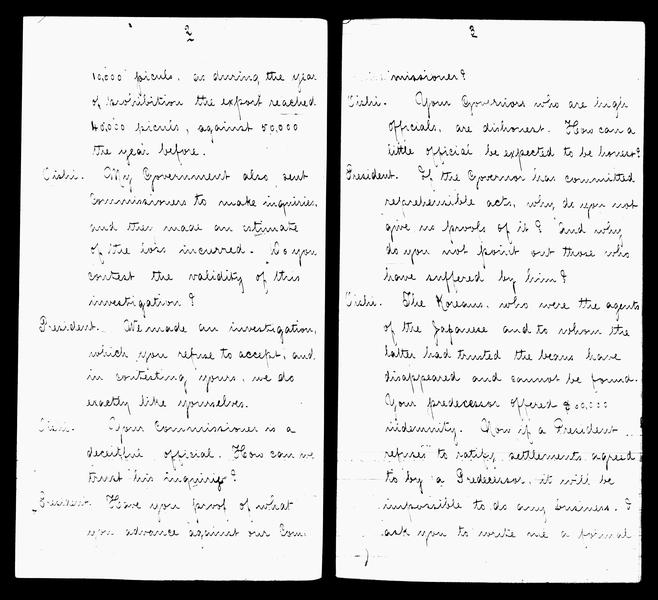 2
10,000 piculs, as during the year
of prohibition the export reached
40,000 piculs, against 50,000
the year before.
Oishi. My Government also sent
Commissioners to make inquiries,
and they made an estimate
of the loss incurred. Do you
contest the validity of this
investigation?
President. We made an investigation,
which you refuse to accept, and
in contesting yours, we do
exactly like yourselves.
Oishi. Your Commissioner is a
deceitful official. How can we
trust his inquiry?
President. Have you proof of what
you advance against our Com-
3
missioner?
Oishi. Your Governors who are high
officials, are dishonest. How can a
little official be expected to be honest?
President. If the Governor has committed
reprehensible acts, why do you not
give us proofs of it? and why
do you not point out those who
have suffered by him?
Oishi. The Koreans, who were the agents
of the Japanese and to whom the
latter had trusted the beans have
disappeared and cannot be found.
Your predecessor offered 60,000
indemnity. Now if a President
refuses to ratify settlements agreed
to by a Predecessor, it will be
impossible to do any business. I
ask you to write me a formal